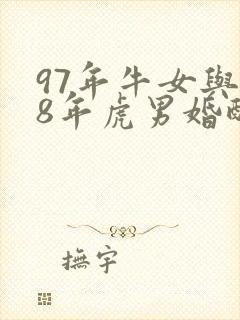 97年牛女與
8年虎男婚
撫宇